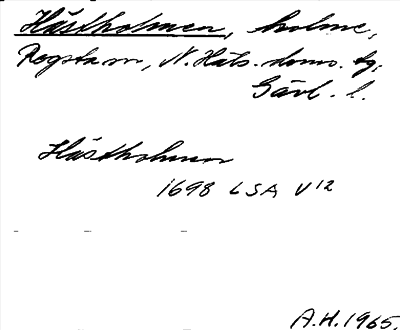 Hästholmen, holme,
Rogsta sn, N. Häls. doms. tg,
Gävl. l.
Hästholmen
1698 LSA V12
A.H. 1965.